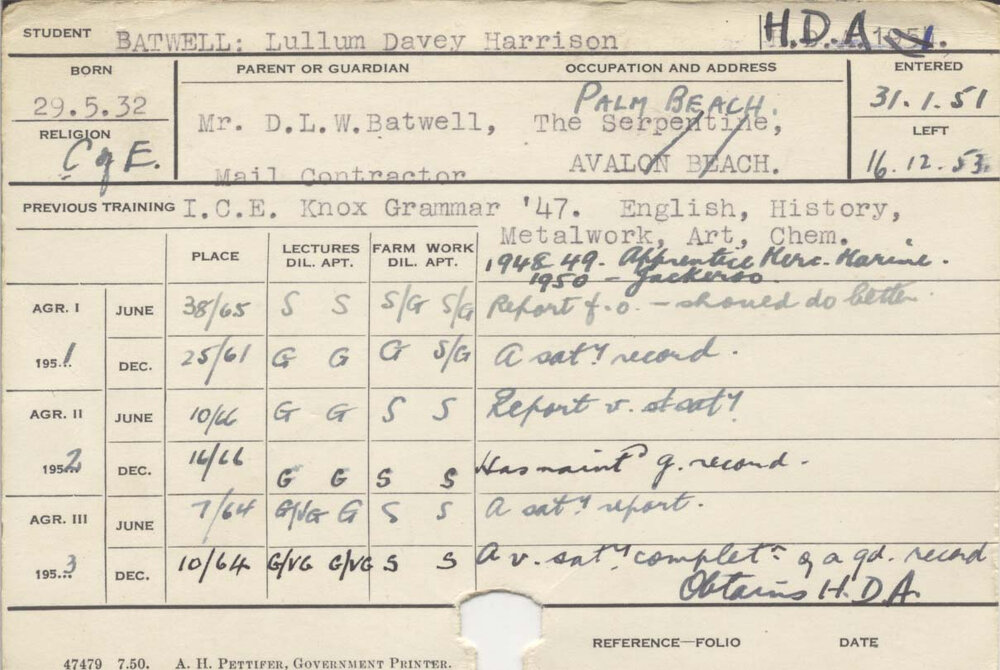 STUDENT BATWELL: Lullum Davey Harrison H.D.A. 1951.
BORN PARENT OR GUARDIAN OCCUPATION AND ADDRESS ENTERED
29.5.32 PALM BEACH. 31.1.51
Mr. D.L.W.Batwell, The Serpentine,
RELIGION LEFT
C of E. AVALON BEACH. 16.12.53
Mail Contractor
PREVIOUS TRAINING I.C.E. Knox Grammar '47. English, History,
Metalwork, Art, Chem.
PLACE LECTURES FARM WORK 1948 49. Apprentice Merc. Marine.
DIL. APT. DIL. APT. 1950 - Jackeroo.
AGR. I JUNE 38/65 S S S/G S/G Report f.o. - should do better.
1951 DEC. 25/61 G G G S/G A saty record.
AGR. II JUNE 10/66 G G S S Report v. saty
1952 DEC. 16/66 G G S S Has maintd g. record.
AGR. III JUNE 7/64 G/VG G S S A saty report.
1953 DEC. 10/64 G/VG G/VG S S A v. saty completn of a gd. record
Obtains H.D.A.
REFERENCE—FOLIO DATE
47479 7.50. A. H. PETTIFER, GOVERNMENT PRINTER.